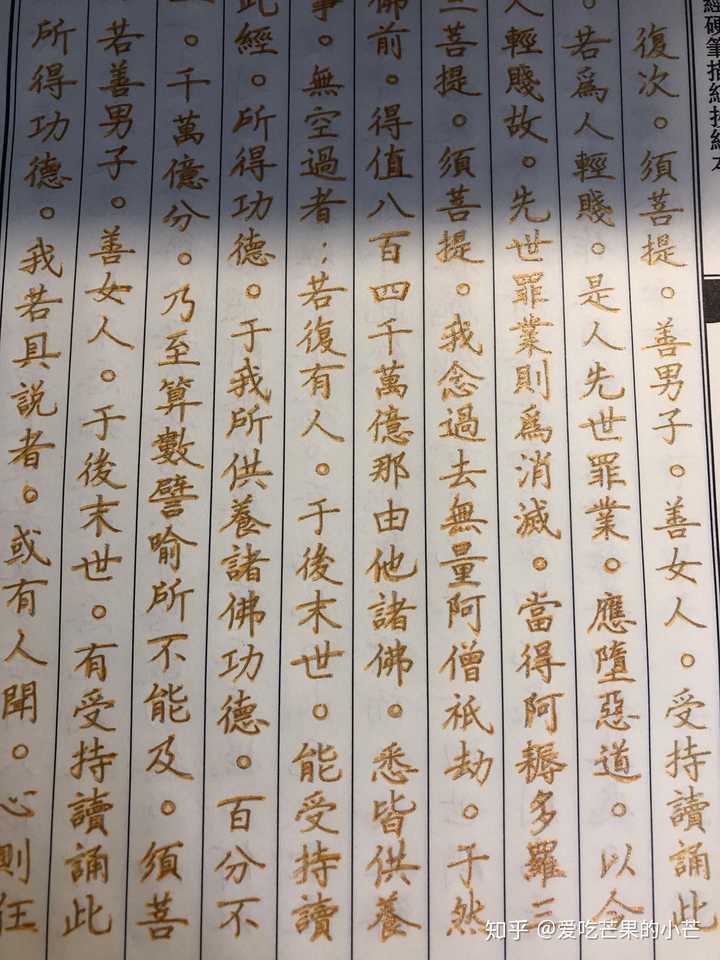 經硬筆描經抄經本
復次。須菩提。善男子。善女人。受持讀誦此
。若爲人輕賤。是人先世罪業。應墮惡道。以今
人輕賤故。先世罪業則爲消滅。當得阿耨多羅三
三菩提。須菩提。我念過去無量阿僧祇劫。于然
佛前。得值八百四千萬億那由他諸佛。悉皆供養
事。無空過者；若復有人。于後末世。能受持讀
此經。所得功德。于我所供養諸佛功德。百分不
一。千萬億分。乃至算數譬喻所不能及。須菩
若善男子。善女人。于後末世。有受持讀誦此
所得功德。我若具說者。或有人聞。心則狂
知乎 @爱吃芒果的小芒